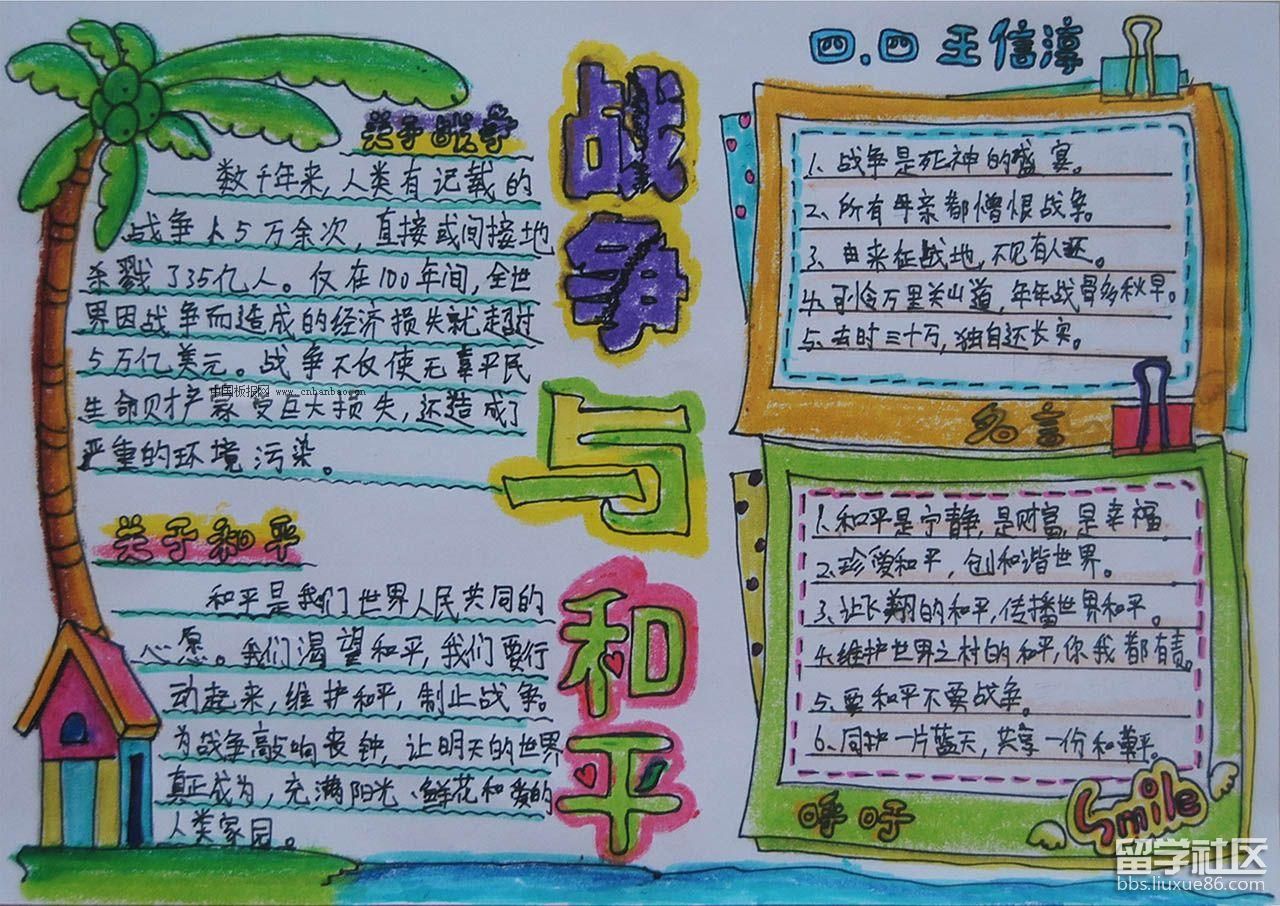 四.四 王信淳
战争与和平
关于战争
数千年来,人类有记载的
战争人5万余次,直接或间接地
杀戮了35亿人。仅在100年间,全世
界因战争而造成的经济损失就超过
5万亿美元。战争不仅使无辜平民
生命财产蒙受巨大损失,还造成了
严重的环境污染。
中国板报网 www.cnbanbao.cn
关于和平
和平是我们世界人民共同的
心愿。我们渴望和平,我们要行
动起来,维护和平,制止战争。
为战争敲响丧钟,让明天的世界
真正成为,充满阳光、鲜花和爱的
人类家园。
1. 战争是死神的盛宴。
2、所有母亲都憎恨战争。
3、由来征战地,不见有人还。
4、可怜万里关山道,年年战骨多秋草。
5、去时三十万,独自还长安。
名言
1.和平是宁静,是财富,是幸福
2、珍爱和平,创和谐世界。
3、让飞翔的和平,传播世界和平。
4.维护世界之村的和平,你我都有责。
5、要和平不要战争。
6、同护一片蓝天,共享一份和平。
呼吁
Smile
留学社区
bbs.liuxue86.com